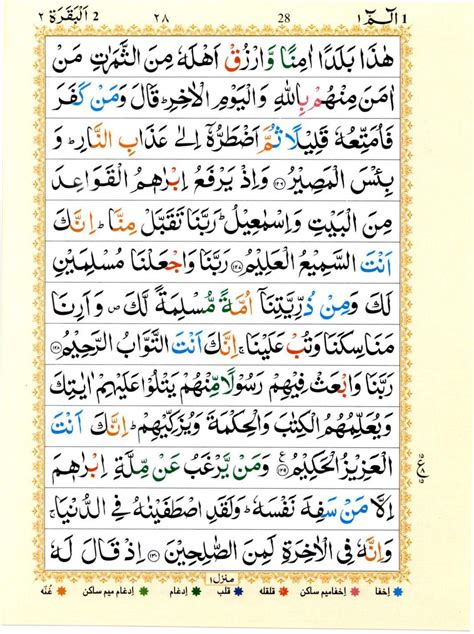 الٓمّٓ ١ 1 28 ٢٨ اَلْبَقَرَة ٢ 2
هٰذَا بَلَدًا اٰمِنًا وَّارْزُقْ اَهْلَهٗ مِنَ الثَّمَرٰتِ مَنْ
اٰمَنَ مِنْهُمْ بِاللّٰهِ وَالْيَوْمِ الْاٰخِرِ ؕ قَالَ وَمَنْ كَفَرَ
فَاُمَتِّعُهٗ قَلِيْلًا ثُمَّ اَضْطَرُّهٗۤ اِلٰى عَذَابِ النَّارِ ؕ وَ
بِئْسَ الْمَصِيْرُ ﴿۱۲۶﴾ وَاِذْ يَرْفَعُ اِبْرٰهٖمُ الْقَوَاعِدَ
مِنَ الْبَيْتِ وَاِسْمٰعِيْلُ ؕ رَبَّنَا تَقَبَّلْ مِنَّا ؕ اِنَّكَ
اَنْتَ السَّمِيْعُ الْعَلِيْمُ ﴿۱۲۷﴾ رَبَّنَا وَاجْعَلْنَا مُسْلِمَيْنِ
لَكَ وَمِنْ ذُرِّيَّتِنَاۤ اُمَّةً مُّسْلِمَةً لَّكَ ۪ وَاَرِنَا
مَنَاسِكَنَا وَتُبْ عَلَيْنَا ۚ اِنَّكَ اَنْتَ التَّوَّابُ الرَّحِيْمُ ﴿۱۲۸﴾
رَبَّنَا وَابْعَثْ فِيْهِمْ رَسُوْلًا مِّنْهُمْ يَتْلُوْا عَلَيْهِمْ اٰيٰتِكَ
وَيُعَلِّمُهُمُ الْكِتٰبَ وَالْحِكْمَةَ وَيُزَكِّيْهِمْ ؕ اِنَّكَ اَنْتَ
الْعَزِيْزُ الْحَكِيْمُ ﴿۱۲۹﴾ وَمَنْ يَّرْغَبُ عَنْ مِّلَّةِ اِبْرٰهٖمَ
اِلَّا مَنْ سَفِهَ نَفْسَهٗ ؕ وَلَقَدِ اصْطَفَيْنٰهُ فِى الدُّنْيَا ۚ
وَاِنَّهٗ فِى الْاٰخِرَةِ لَمِنَ الصّٰلِحِيْنَ ﴿۱۳۰﴾ اِذْ قَالَ لَهٗ
منزل ١
اخفا اخفامیم ساکن قلقله قلب ادغام ادغام میم ساکن غنّه